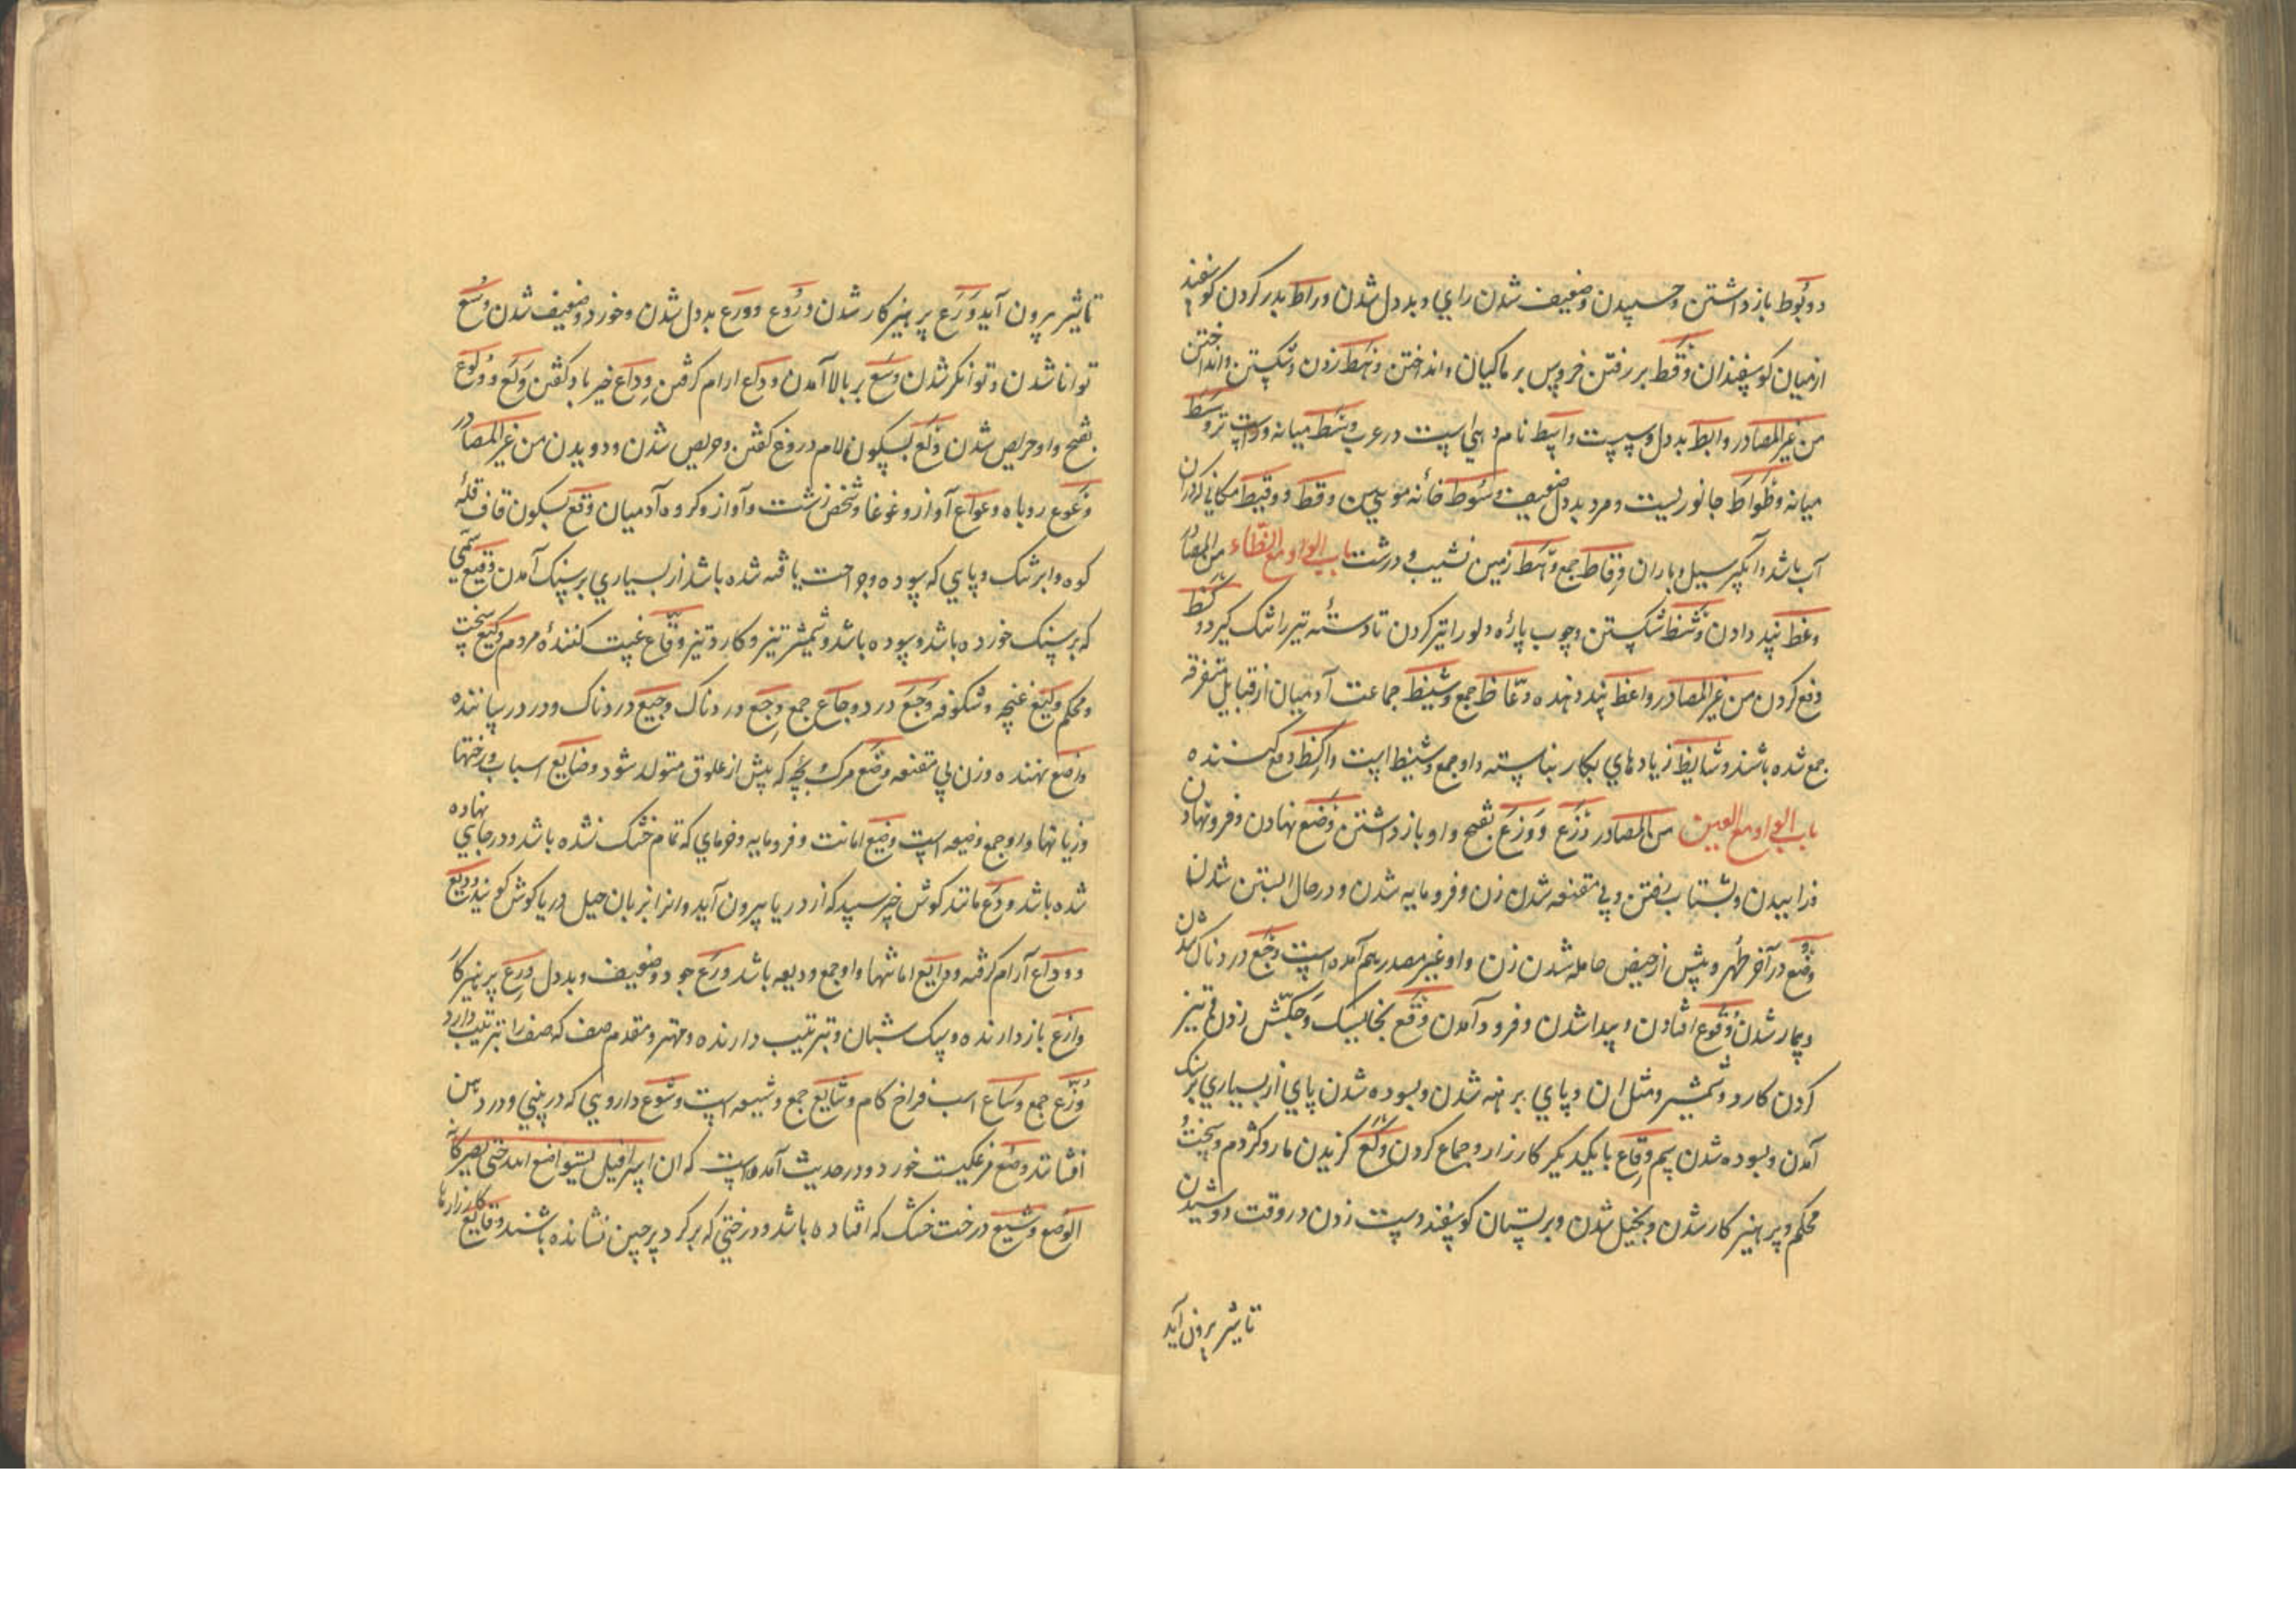 و وبوط باز داشتن و حسپیدن و ضعیف شدن رای و بد دل شدن و راط بدر کردن کوسفند
از میان کوسفندان وقط بر رفتن خروس بر ماکیان و انداختن و نهط زدن و شکستن و انداختن
من غیر المصادر وابط بد دل و سست واسط نام دهی است در عرب وسط میانه و راست تر وسط
میانه وطواط جانوریست و مرد بد دل ضعیف و سوط خانه مویین وقط و وقیط مکانی که دران
آب باشد و آبگیر سیل و باران وقاط جمع و هط زمین نشیب و درشت باب الواو مع الظاء من المصادر
وعظ پند دادن وشظ شکستن و چوب پاره و لور ا تیز کردن تا دسته تیر را تنک گیرد وکظ
دفع کردن من غیر المصادر واعظ پند دهنده وعاظ جمع وشیظ جماعت آدمیان از قبایل متفرقه
جمع شده باشند وشایظ زیادهای بکار نیاسته و او جمع وشیظ است واکظ دفع کننده
باب الواو مع العین من المصادر وزع و وزع بفتح واو باز داشتن وضع نهادن و فرو نهادن
و زاییدن و بشتاب رفتن و بی مقنعه شدن زن و فرومایه شدن و در حال ابستن شدن
وضع در آخر طهر و پیش از حیض حامله شدن زن و او غیر مصدر هم آمده است وجع دردناک شدن
و بیمار شدن وقوع افتادن و پیدا شدن و فرود آمدن وقع بخایسک و چکش زدن و تیز
کردن کارد و شمشیر و مثل ان و پای برهنه شدن و بسوده شدن پای از بسیاری بر سنک
آمدن و بسوده شدن سم وقاع با یکدیگر کارزار و جماع کردن وکع گزیدن مار و کژدم و سخت
محکم و پرهیز کار شدن و بخیل شدن و بر پستان کوسفند دست زدن در وقت دوشیدن
تا شیر برون آید
تا شیر برون آید ورع پرهیز کار شدن و روع و ورع بد دل شدن و خورد و ضعیف شدن وسع
توانا شدن و توانکر شدن وسع بر بالا آمدن ودع ارام گرفتن وداع خیر باد کفتن ولع و ولوع
بفتح واو حریص شدن ولع بسکون لام دروغ کفتن و حریص شدن و دویدن من غیر المصادر
وعوع روباه وعواع آواز و غوغا و شخص زشت و آواز و کروه آدمیان وقع بسکون قاف قله
کوه و ابر تنک و پایی که سوده و جراحت یافته شده باشد از بسیاری بر سنک آمدن وقیع سمی
که بر سنک خورده باشد و سوده باشد و شمشیر تیز و کارد تیز وقاع غیبت کننده مردم وکیع سخت
و محکم ولیع غنچه و شکوفه وجع درد وجاع جمع وجع دردناک وجیع دردناک و درد رساننده
واضع نهنده و زن بی مقنعه وضع مرک و بچه که پیش از علوق متولد شود وضایع اسباب و رختها
و زیانها و او جمع وضیعه است وضیع امانت و فرومایه و خرمای که تمام خشک نشده باشد و در جایی نهاده
شده باشد ودع مانند کوش خر سپید که از دریا بیرون آید و انرا بزبان جیل دریا کوش کویند ودیع
و وداع آرام گرفته ودایع امانتها و او جمع ودیعه باشد ورع خود و ضعیف و بد دل ورع پرهیز کار
وازع باز دارنده و سک شبان و ترتیب دارنده و مهتر و مقدم صف که صف را ترتیب دارد
وزع جمع وساع اسب فراخ کام وشایع جمع وشیعه است وشوع دارویی که در بینی و در دهن
افشانند وصع مرغکیست خورد و در حدیث آمده است که ان اسرافیل لیتواضع لله حتی یصیر کانه
الوصع وشیع درخت خشک که افتاده باشد و درختی که بر کرد پرچین نشانده باشند وقایع کارزارها